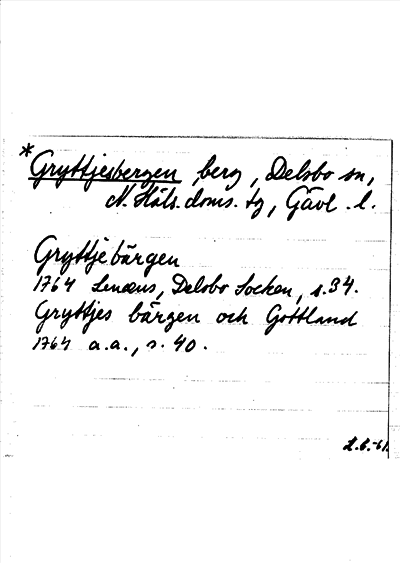 *Gryttjesbergen berg, Delsbo sn,
N. Häls. doms. tg, Gävl. l.
Gryttjebärgen
1764 Lenæus, Delsbo Socken, s. 34.
Gryttjes bärgen och Gottland
1764 a.a., s. 40.
L.b.-61.